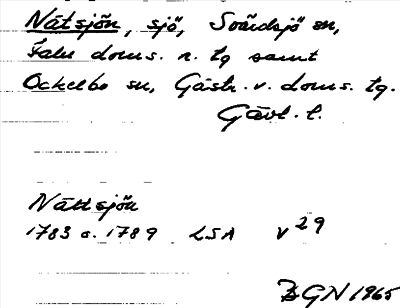 Nätsjön, sjö, Svärdsjö sn,
Falu doms. n. tg samt
Ockelbo sn, Gästr. v. doms. tg.
Gävl. l.
Nättsjön
1783 o. 1789 LSA V 29
BGN 1965